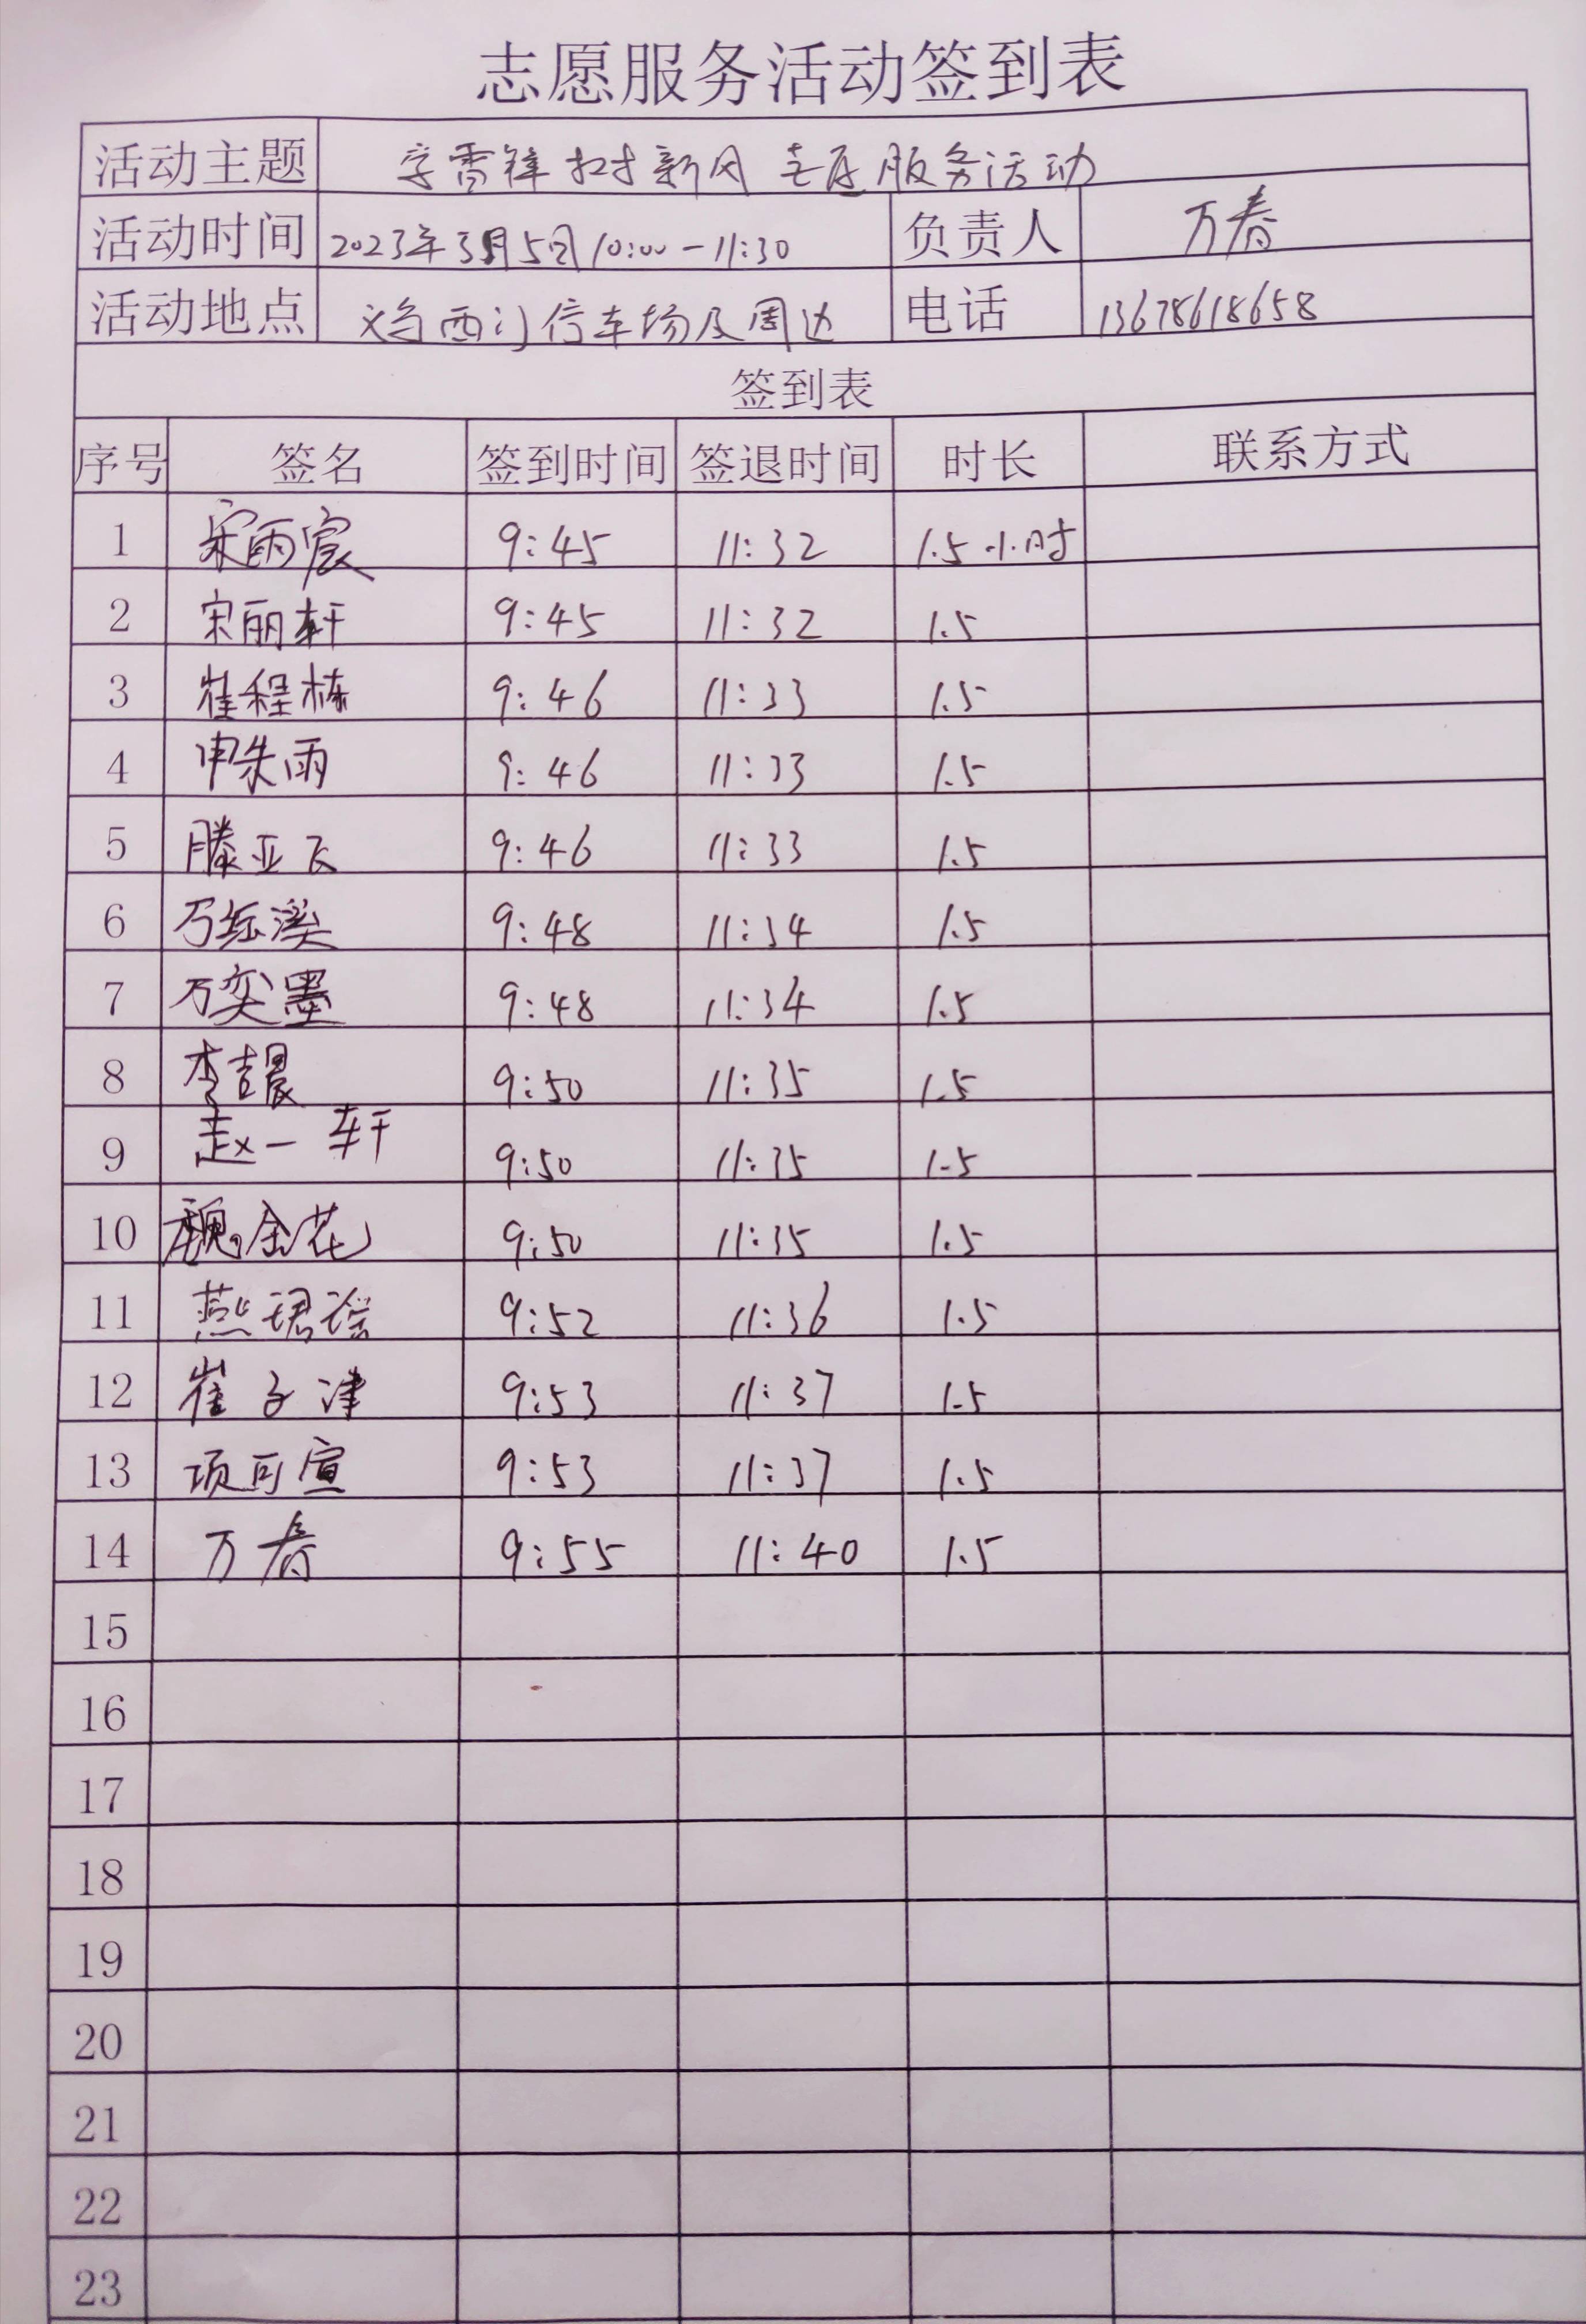 志愿服务活动签到表
活动主题 学雷锋 树新风 志愿服务活动
活动时间 2023年3月5日10:00-11:30 负责人 万春
活动地点 西门停车场及周边 电话 13678618658
签到表
序号 签名 签到时间 签退时间 时长 联系方式
1 宋雨宸 9:45 11:32 1.5小时
2 宋丽轩 9:45 11:32 1.5
3 崔程栋 9:46 11:33 1.5
4 申朱雨 9:46 11:33 1.5
5 滕亚飞 9:46 11:33 1.5
6 万 溪 9:48 11:34 1.5
7 万奕墨 9:48 11:34 1.5
8 李喆晨 9:50 11:35 1.5
9 赵一轩 9:50 11:35 1.5
10 魏金花 9:50 11:35 1.5
11 燕珺瑶 9:52 11:36 1.5
12 崔子津 9:53 11:37 1.5
13 项可宣 9:53 11:37 1.5
14 万春 9:55 11:40 1.5
15
16
17
18
19
20
21
22
23